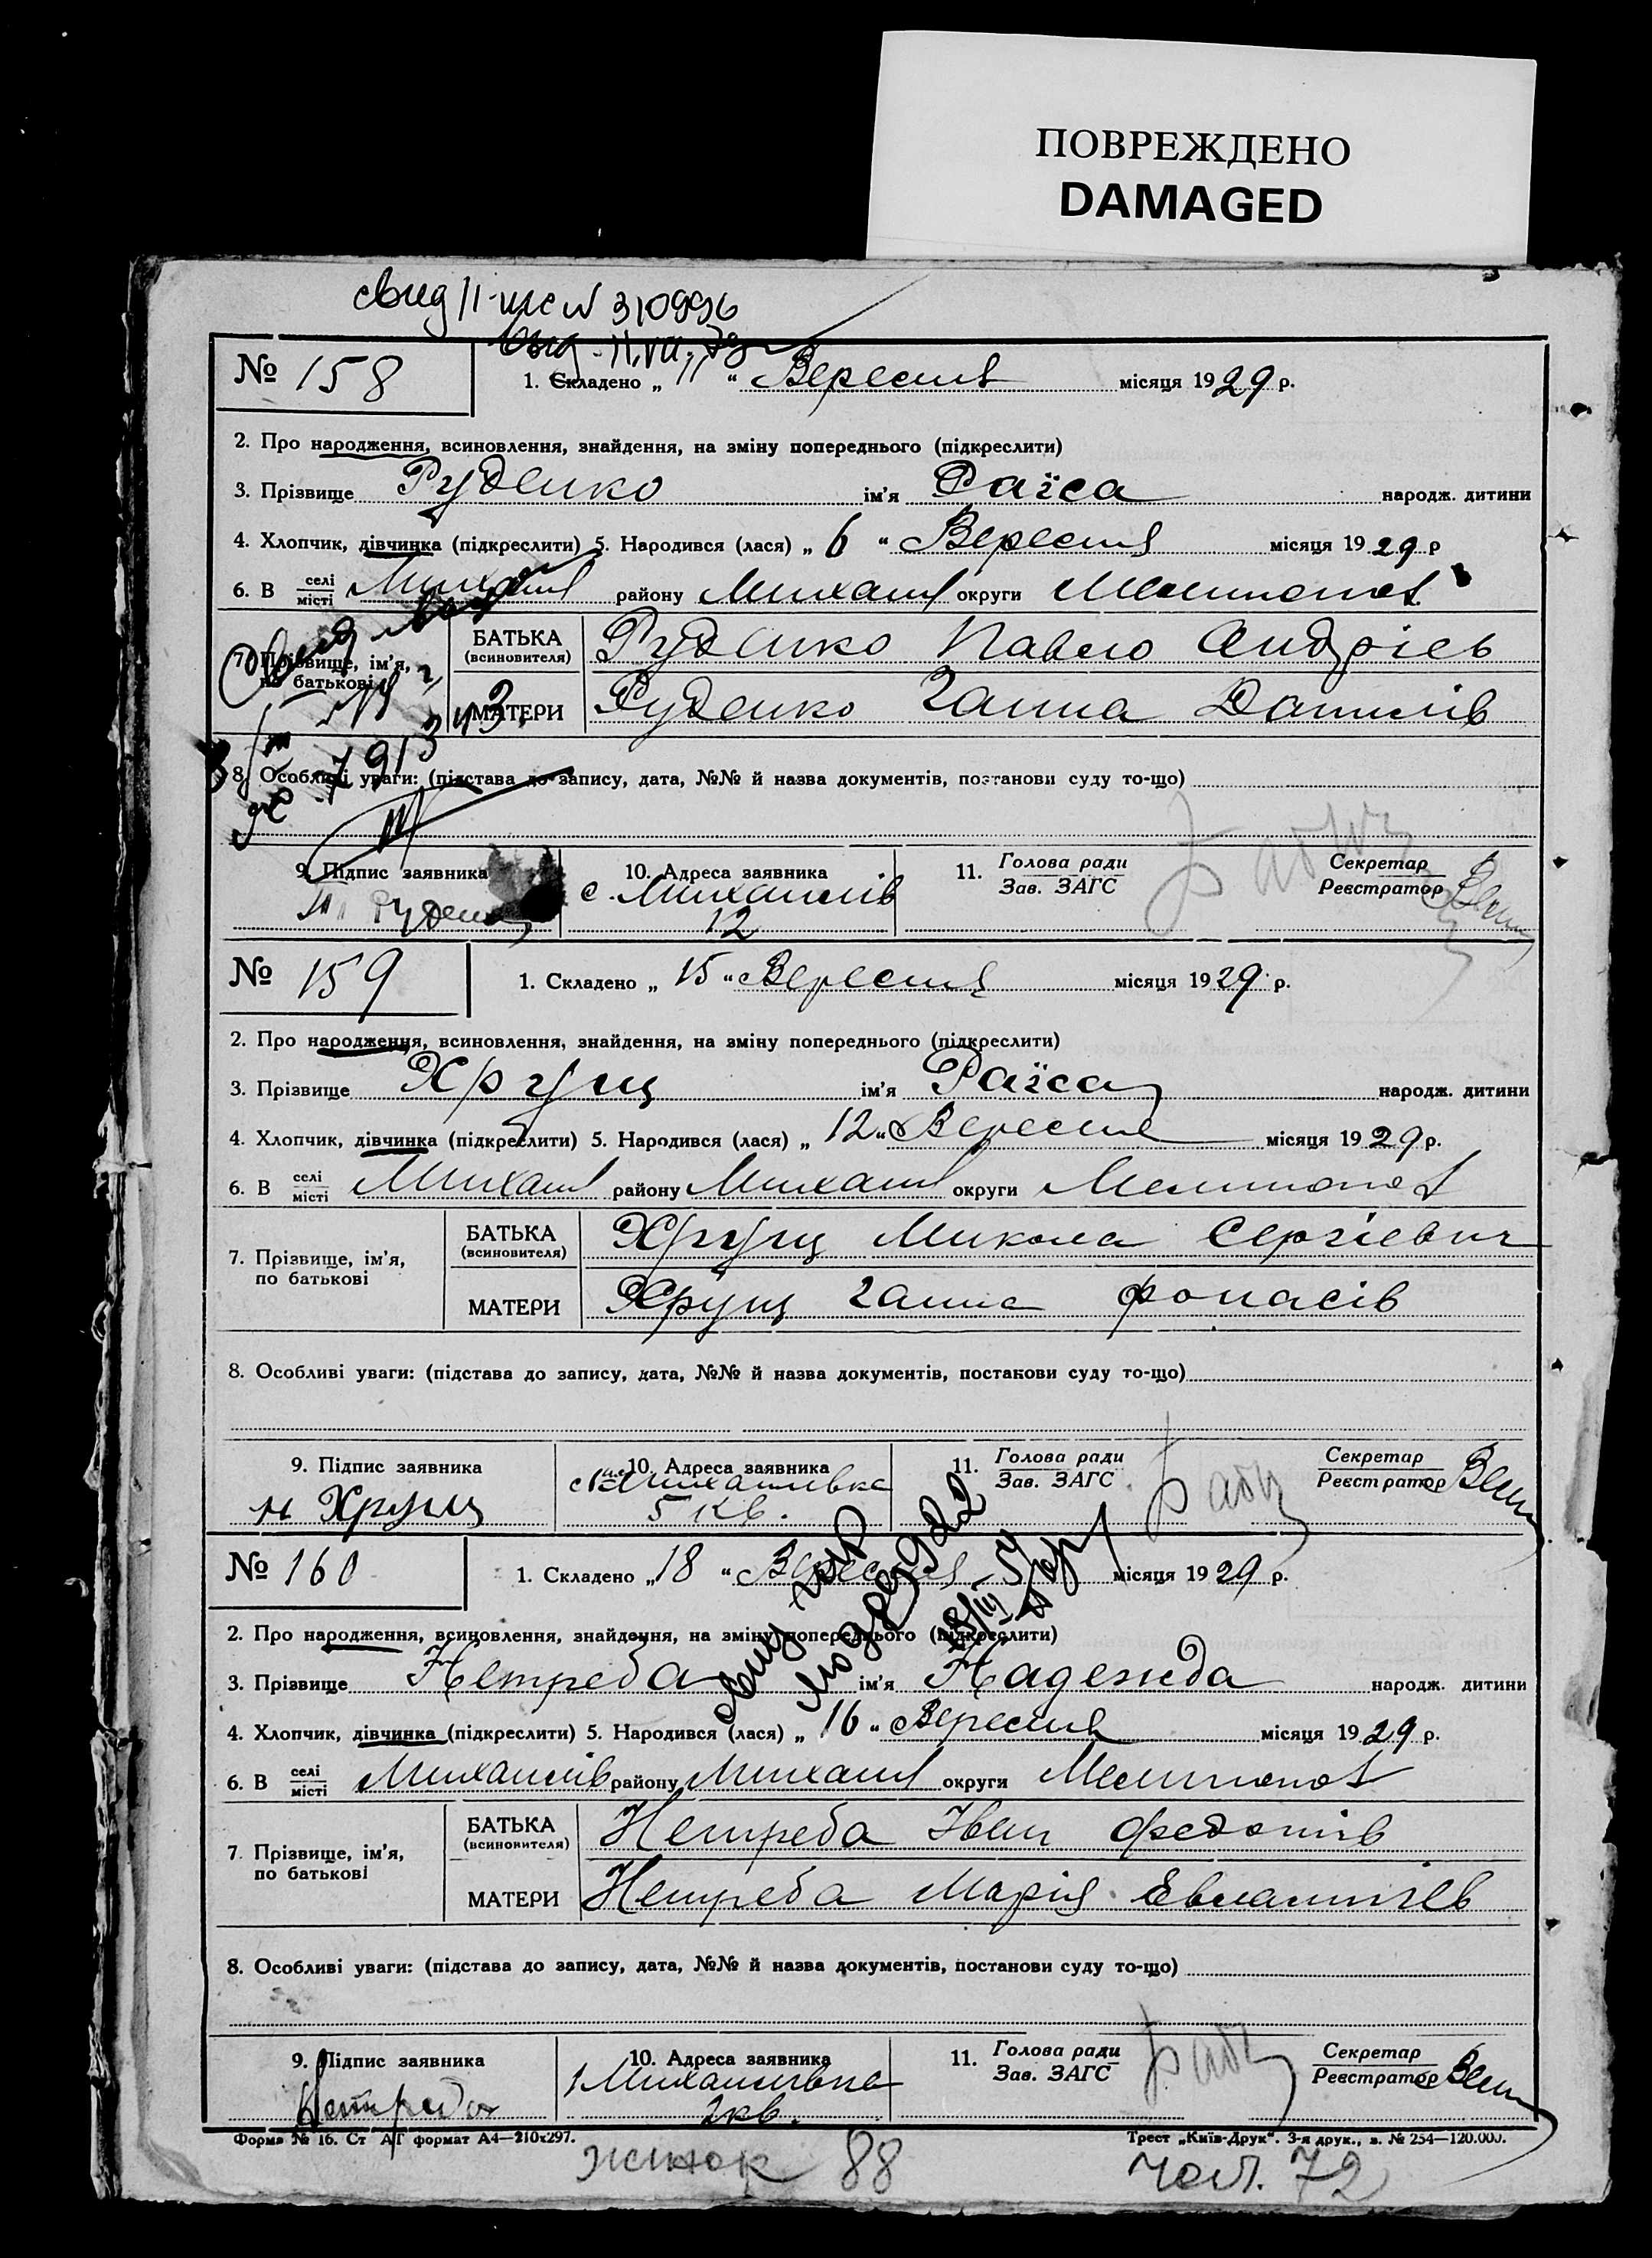 ПОВРЕЖДЕНО
DAMAGED
№ 310996
№ 158
1. Складено „ 11 “ Вересня місяця 1929 р.
2. Про народження, всиновлення, знайдення, на зміну попереднього (підкреслити)
3. Прізвище Руденко ім'я Раїса народж. дитини
4. Хлопчик, дівчинка (підкреслити) 5. Народився (лася) „ 6 “ Вересня місяця 1929 р
6. В селі місті Михайл району Михайл округи Мелитопол
7. Прізвище, ім'я, по батькові
БАТЬКА (всиновителя) Руденко Павло Андріев
МАТЕРИ Руденко Ганна Данилів
8. Особливі уваги: (підстава до запису, дата, №№ й назва документів, постанови суду то-що)
9. Підпис заявника 10. Адреса заявника 11. Голова ради Зав. ЗАГС Секретар Реєстратор
Руденко с. Михайлів
12
№ 159
1. Складено „ 15 “ Вересня місяця 1929 р.
2. Про народження, всиновлення, знайдення, на зміну попереднього (підкреслити)
3. Прізвище Хрущ ім'я Раїса народж. дитини
4. Хлопчик, дівчинка (підкреслити) 5. Народився (лася) „ 12 “ Вересня місяця 1929 р.
6. В селі місті Михайл району Михайл округи Мелитопол
7. Прізвище, ім'я, по батькові
БАТЬКА (всиновителя) Хрущ Микола Сергіевич
МАТЕРИ Хрущ Ганна Фонасів
8. Особливі уваги: (підстава до запису, дата, №№ й назва документів, постанови суду то-що)
9. Підпис заявника 10. Адреса заявника 11. Голова ради Зав. ЗАГС Секретар Реєстратор
Н Хрущ Михайлівка
5 кв.
№ 160
1. Складено „ 18 “ Вересня місяця 1929 р.
2. Про народження, всиновлення, знайдення, на зміну попереднього (підкреслити)
3. Прізвище Нетреба ім'я Надежда народж. дитини
4. Хлопчик, дівчинка (підкреслити) 5. Народився (лася) „ 16 “ Вересня місяця 1929 р.
6. В селі місті Михайлів району Михайл округи Мелитопол
7. Прізвище, ім'я, по батькові
БАТЬКА (всиновителя) Нетреба Іван Федотів
МАТЕРИ Нетреба Марія Евлампіев
8. Особливі уваги: (підстава до запису, дата, №№ й назва документів, постанови суду то-що)
9. Підпис заявника 10. Адреса заявника 11. Голова ради Зав. ЗАГС Секретар Реєстратор
Нетреба Михайлівка
2 кв.
Форма № 16. Ст АГ формат А4—210х297. Трест „Київ-Друк“. 3-я друк., з. № 254—120.000.
жінок 88 чол. 72